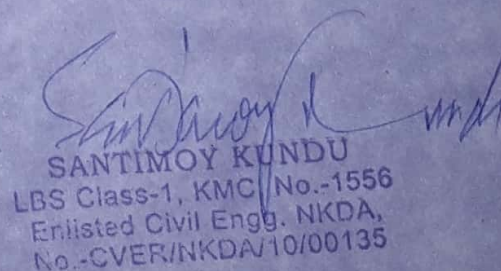 Santimoy Kundu
SANTIMOY KUNDU
LBS Class-1, KMC No.-1556
Enlisted Civil Engg. NKDA,
No.-CVER/NKDA/10/00135